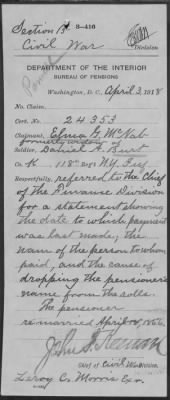 Section B 3-416
Civil War Division
DEPARTMENT OF THE INTERIOR
BUREAU OF PENSIONS
Washington, D.C., April 3, 1918
No. Claim,
Cert. No. 24353
Claimant, Elma G. McNab
formerly widow of
Soldier, Daniel A. Burt
Co. K 118" Regt N.Y. Inf
Respectfully referred to the Chief
of the Finance Division
for a statement showing
the date to which payment
was last made, the
name of the person to whom
paid, and the cause of
dropping the pensioner's
name from the rolls.
The pensioner
remarried April
John S.
Chief of Civil War Division.
Leroy C. Morris Exr.